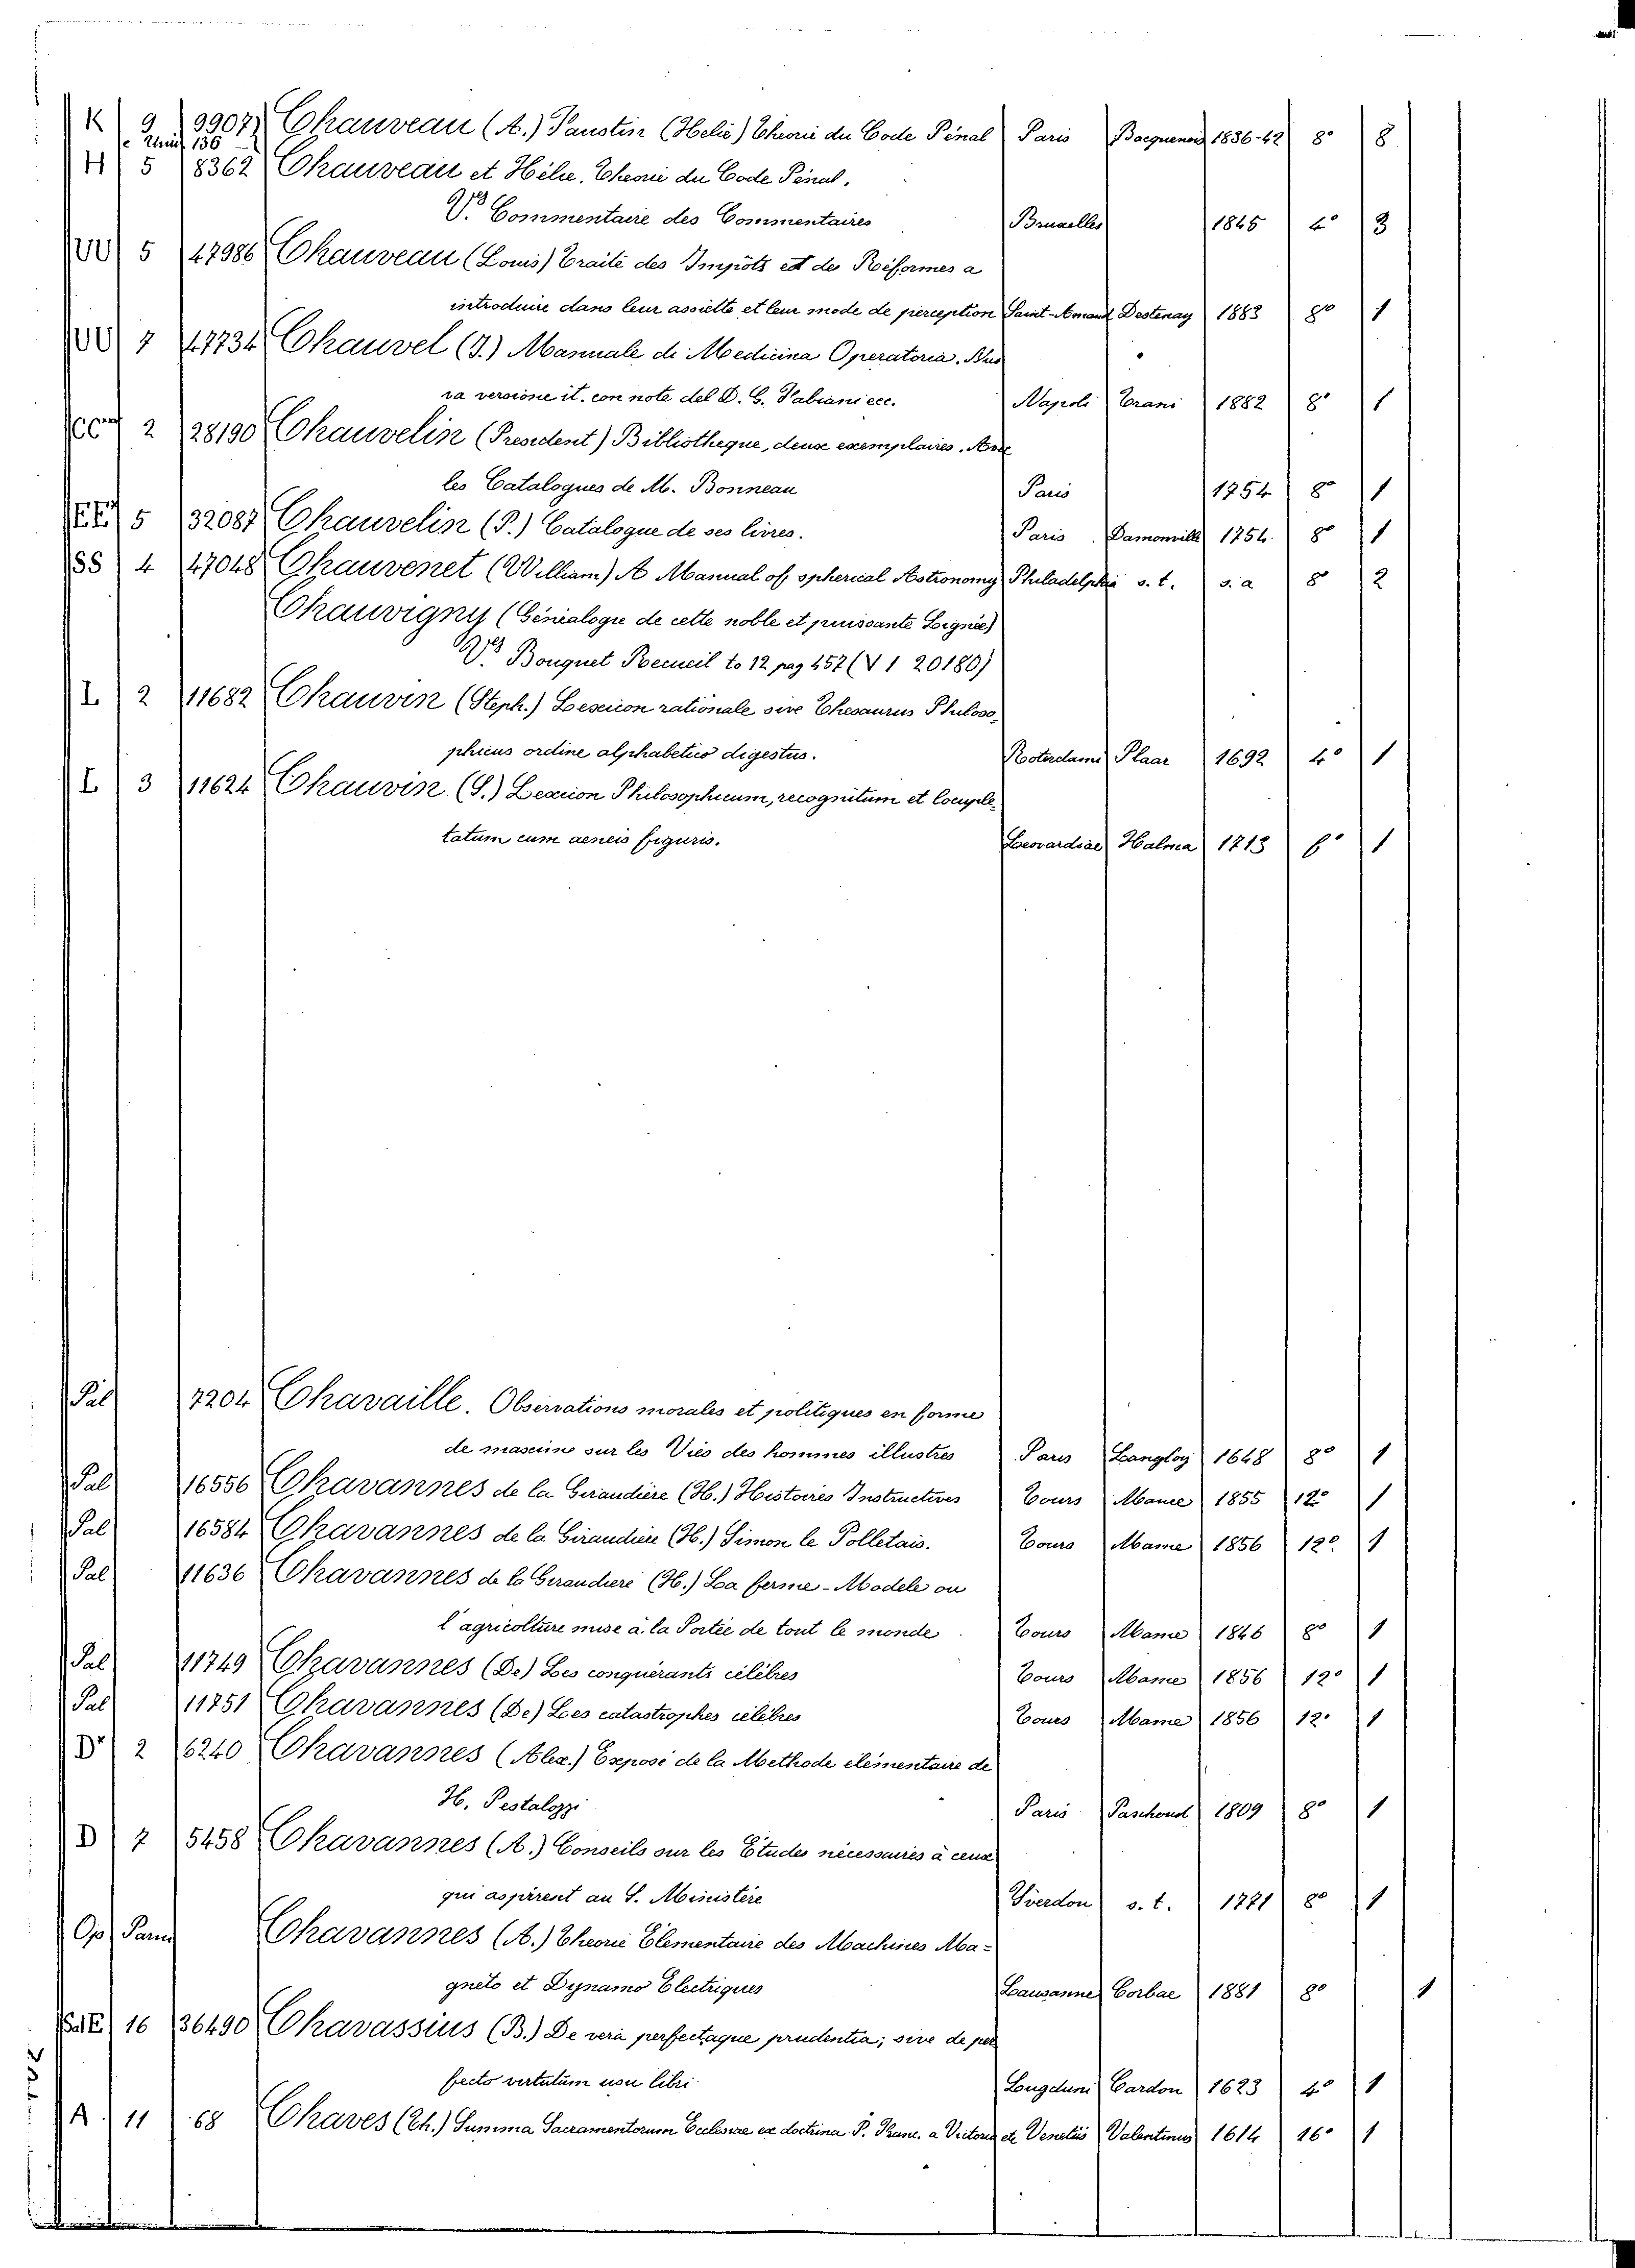 K 9 9907 Chauveau (A.) Faustin (Helie) Theorie du Code Pénal Paris Bacquenois 1836-42 8° 8
136
H 5 8362 Chauveau et Hélie. Theorie du Code Pénal.
V. Commentaire des Commentaires Bruxelles 1845 4° 3
VV 5 47986 Chauveau (Louis) Traité des Impôts et des Réformes a
introduire dans leur assiette et leur mode de perception Saint-Amand Destenay 1883 8° 1
VV 7 47734 Chauvel (J.) Manuale di Medicina Operatoria. Nuo
va versione it. con note del D. C. Fabiani ecc. Napoli Trani 1882 8° 1
CC 2 28190 Chauvelin (President) Bibliotheque, deux exemplaires. Avec
les Catalogues de M. Bonneau Paris 1754 8° 1
EE 5 32087 Chauvelin (P.) Catalogue de ses livres. Paris Damonville 1754 8° 1
SS 4 47048 Chauvenet (William) A Manual of spherical Astronomy Philadelphia s. t. s. a 8° 2
Chauvigny (Génialogie de cette noble et puissante Lignée)
V. Bouquet Recueil to 12 pag 457 (V 1 20180)
I 2 11682 Chauvin (Steph.) Lexicon rationale sive Thesaurus Philoso-
phicus ordine alphabetico digestus. Roterdami Plaar 1692 4° 1
I 3 11624 Chauvin (S.) Lexicon Philosophicum, recognitum et locuple-
tatum cum aeneis figuris. Leovardiae Halma 1713 f° 1
Pal 7204 Chavaille. Observations morales et politiques en forme
de maxime sur les Vies des hommes illustres Paris Langloy 1648 8° 1
Pal 16556 Chavannes de la Giraudiere (H.) Histoires Instructives Tours Mame 1855 12° 1
Pal 16584 Chavannes de la Giraudiere (H.) Simon le Polletais. Tours Mame 1856 12° 1
Pal 11636 Chavannes de la Giraudiere (H.) La ferme-Modele ou
l'agricolture mise à la Portée de tout le monde. Tours Mame 1846 8° 1
Pal 11749 Chavannes (De) Les conquérants célèbres Tours Mame 1856 12° 1
Pal 11751 Chavannes (De) Les catastrophes célèbres Tours Mame 1856 12° 1
D 2 6240 Chavannes (Alex.) Exposé de la Methode elémentaire de
H. Pestalozzi Paris Paschoud 1809 8° 1
D 7 5458 Chavannes (A.) Conseils sur les Etudes nécessaires à ceux
qui aspirent au S. Ministère Yverdon s. t. 1771 8° 1
Op Pam Chavannes (A.) Theorie Elementaire des Machines Ma=
gneto et Dynamo Electriques Lausanne Corbac 1881 8° 1
16 36490 Chavassius (B.) De vera perfectaque prudentia; sive de per
fecto virtutum usu libri Lugduni Cardon 1623 4° 1
A 11 68 Chaves (Th.) Summa Sacramentorum Ecclesiae ex doctrina P. Franc. a Victoria etc Venetiis Valentinus 1614 16° 1